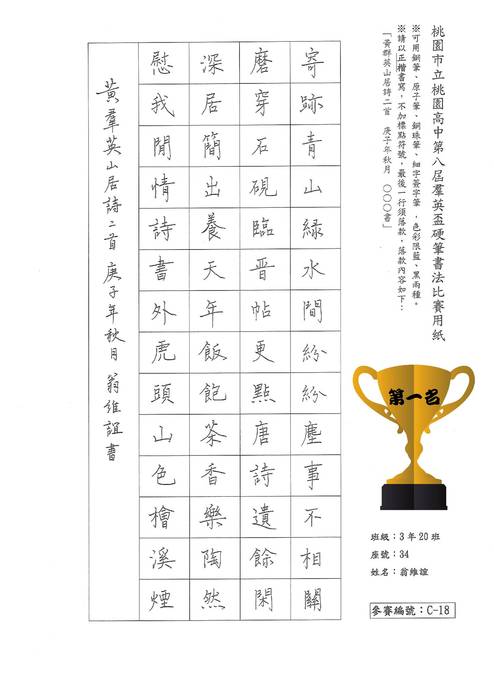 桃園市立桃園高中第八屆羣英盃硬筆書法比賽用紙
※可用鋼筆、原子筆、鋼珠筆、細字簽字筆,色彩限藍、黑兩種。
※請以正楷書寫,不加標點符號,最後一行須落款,落款內容如下:
「黃群英山居詩二首 庚子年秋月 ○○○書」
寄跡青山綠水間紛紛塵事不相關
磨穿石硯臨晉帖更點唐詩遺餘閑
深居簡出養天年飯飽茶香樂陶然
慰我閒情詩書外虎頭山色檜溪煙
黃羣英山居詩二首 庚子年秋月 翁維誼書
第一名
班級:3年20班
座號:34
姓名:翁維誼
參賽編號:C-18